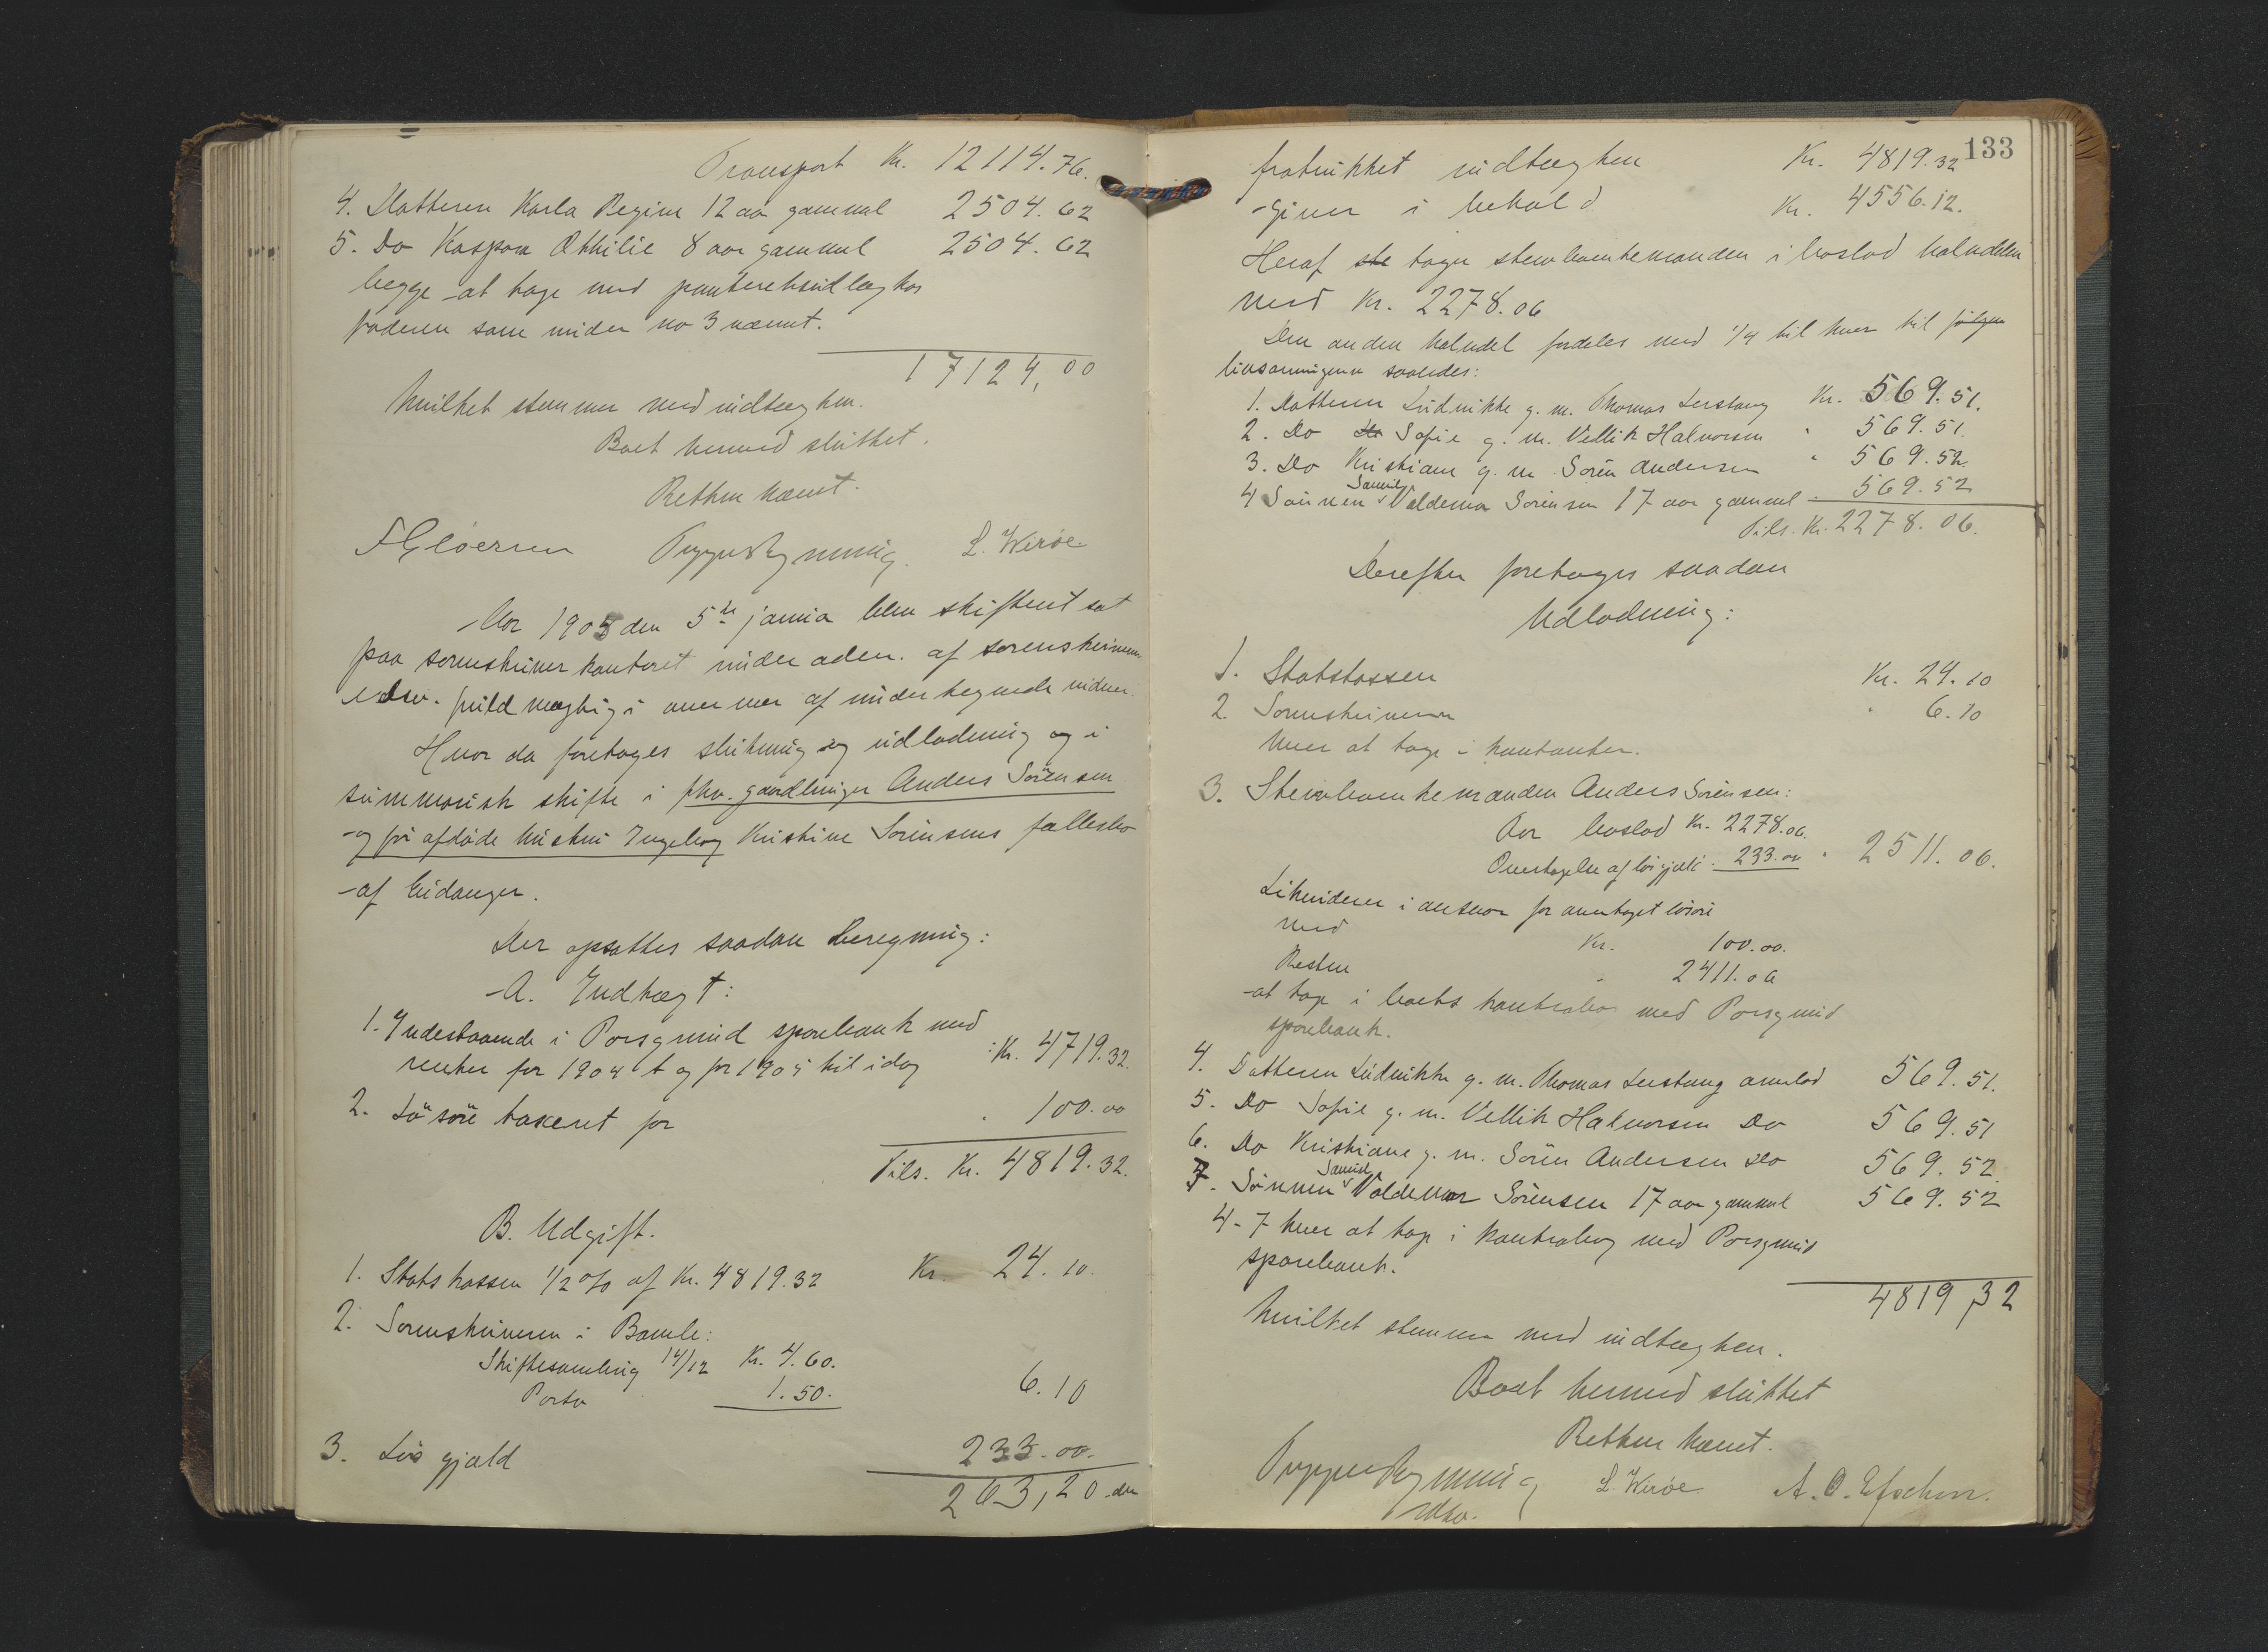 Transport Kr. 12114.76.
4. Datteren Karla Regine 12 aar gammel 2504.62
5. Do Kaspara Othilie 8 aar gammel 2504.62
begge at tage ved panteretsindtægt hos
faderen som under no 3 nævnt.
17124,00
Hvilket stemmer med indtægten.
Boet hermed sluttet.
Retten hævet.
L. Wirøe
Aar 1905 den 5te januar blev skifteret sat
paa sorenskriverkontoret under adm. af sorenskriverens
edsv. fuldmægtig i overvær af undertegnede vidner.
Hvor da foretoges slutning og udlodning og i
summarisk skifte i fhv. gaardbruger Anders Sörensen
og fru afdöde hustru Ingeborg Kristine Sörensens fællesbo
af Eidanger.
Der opsattes saadan Beregning:
A. Indtægt:
1. Indestaaende i Porsgrund sparebank med
renter for 1904 t og for 1905 til idag :Kr. 4719.32.
2. Lösöre taxeret for " 100.00
Tils. Kr. 4819.32.
B. Udgift.
1. Statskassen 1/2 % af Kr. 4819.32 Kr. 24.10.
2. Sorenskriveren i Bamle:
Skiftesamling 14/12 Kr. 4.60.
Porto 1.50. 6.10
3. Lös gjæld 233.00.
263,20 der
133
fratrukket indtægten Kr. 4819.32
Giver i behold Kr. 4556.12.
Heraf ste tager stervboenkemanden i boslod halvdelen
med Kr. 2278.06
Den anden halvdel fordeles med 1/4 til hver til følgen
livsarvingerne saaledes:
1. Datteren Ludvikke g. m. Thomas Lerstang Kr. 569.51.
2. Do Do Sofie g. m. Vellik Halvorsen " 569.51.
3. Do Kristiane g. m. Sörén Andersen " 569.52.
4 Sönnen Samuel Valdemar Sörensen 17 aar gammel - 569.52
Tils. Kr. 2278.06.
Derefter foretoges saadan
Udlodning:
1. Statskassen Kr. 24.10
2. Sorenskriveren " 6.10
hver at tage i kontanter.
3. Stervboenkemanden Anders Sörensen:
For boslod Kr. 2278.06.
Overtagelse af lös gjæld - 233.00 " 2511.06.
Likviderer i ansvar for overtaget lösöre
med Kr. 100.00.
Resten " 2411.06
at tage i boets kontrabog med Porsgrund
sparebank.
4. Datteren Ludvikke g. m. Thomas Lerstang arvelod 569.51.
5. Do Sofie g. m. Vellik Halvorsen Do 569.51
6. Do Kristiane g. m. Sörén Andersen Do 569.52.
7. Sönnen Samuel Valdemar Sörensen 17 aar gammel 569.52
4-7 hver at tage i kontrabog med Porsgrund
sparebank.
4819,32
Hvilket stemmer med indtægten.
Boet hermed sluttet
Retten hævet.
L. Wirøe
edsv.